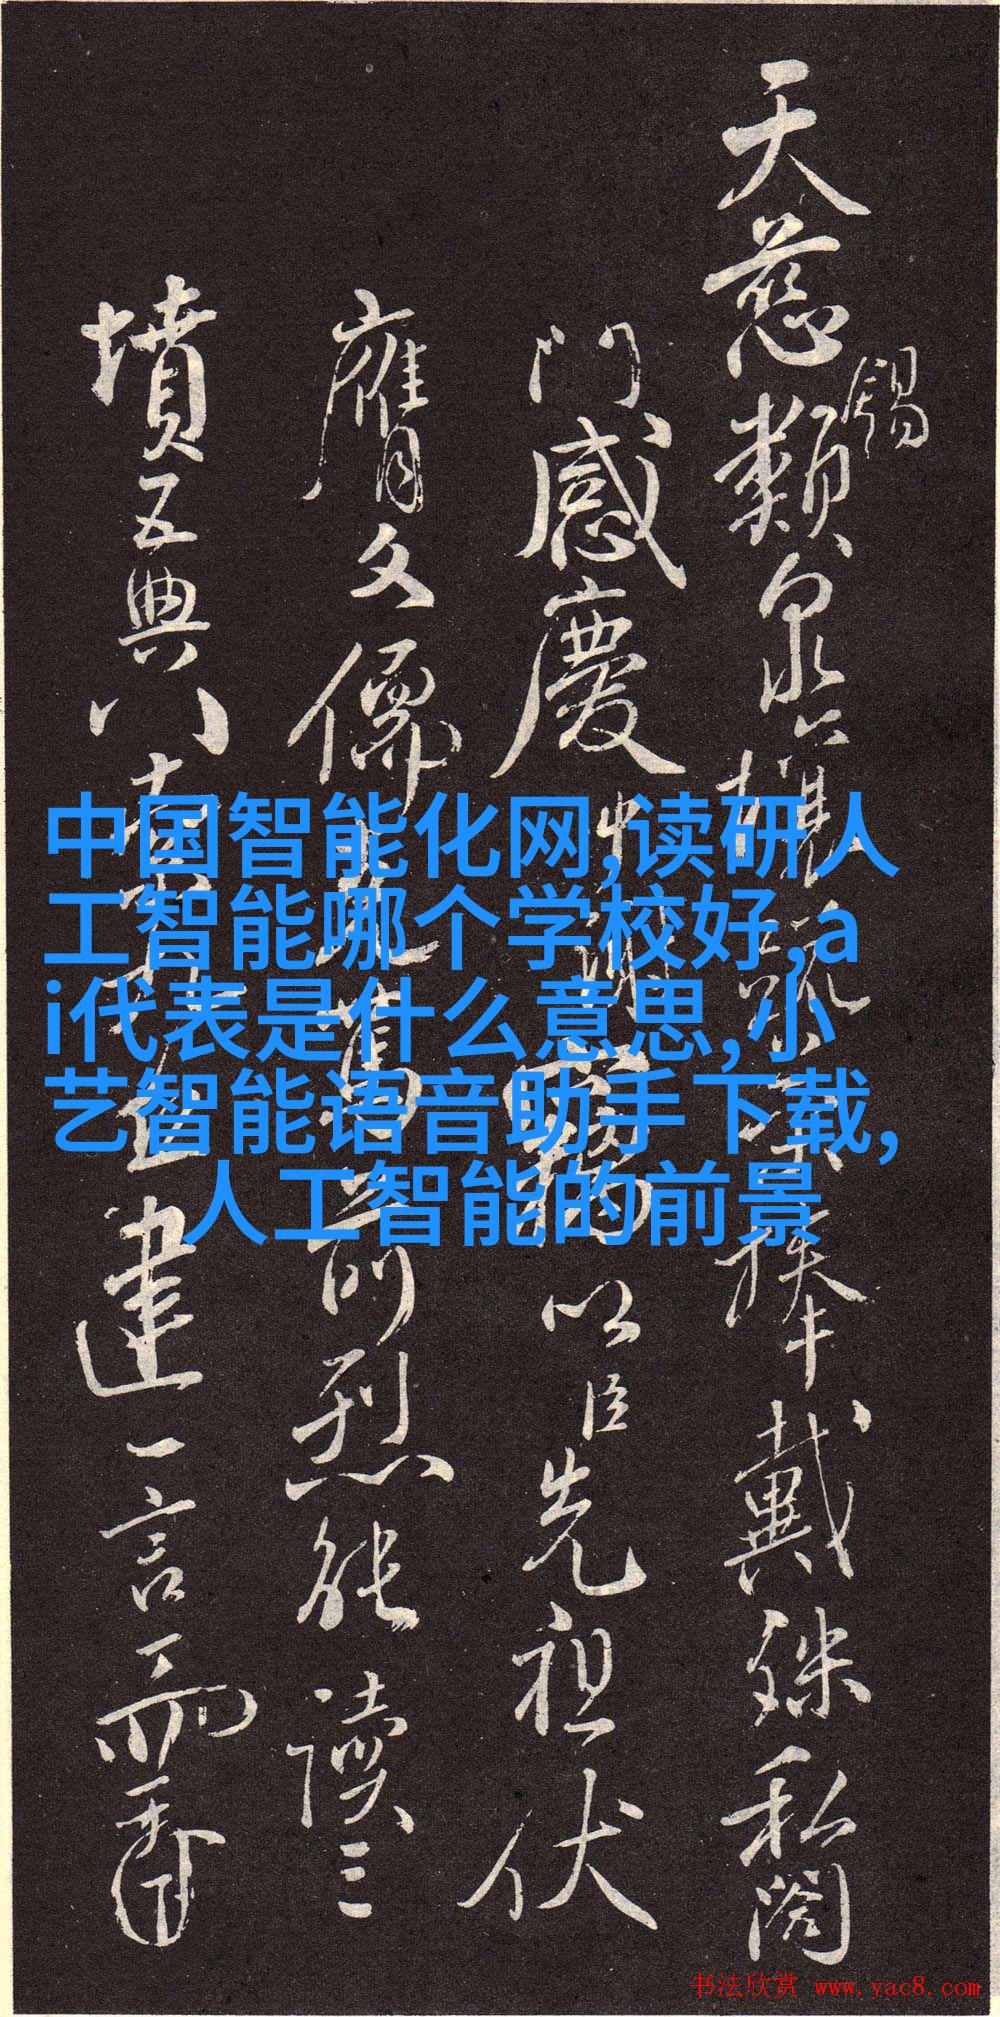 天慈類泉捧戴殊私闔
錫
門感慶以臣先祖伏
膺文儒前烈能讀三
墳五典八建一言而
中国智能化网,读研人
工智能哪个学校好,a
i代表是什么意思,小
艺智能语音助手下载,
人工智能的前景
书法欣赏 www.yac8.com